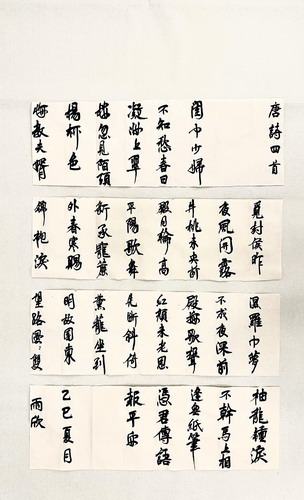 唐詩四首
閨中少婦
不知愁春日
凝妝上翠
樓忽見陌頭
楊柳色
悔教夫壻
覓封侯昨
夜風開露
井桃未央前
殿月輪高
平陽歌舞
新承寵簾
外春寒賜
錦袍淚
溼羅巾夢
不成夜深前
殿按歌聲
紅顏未老恩
先斷斜倚
薰籠坐到
明故園東
望路漫〻雙
袖龍鍾淚
不幹馬上相
逢無紙筆
憑君傳語
報平安
乙巳夏月
雨欣